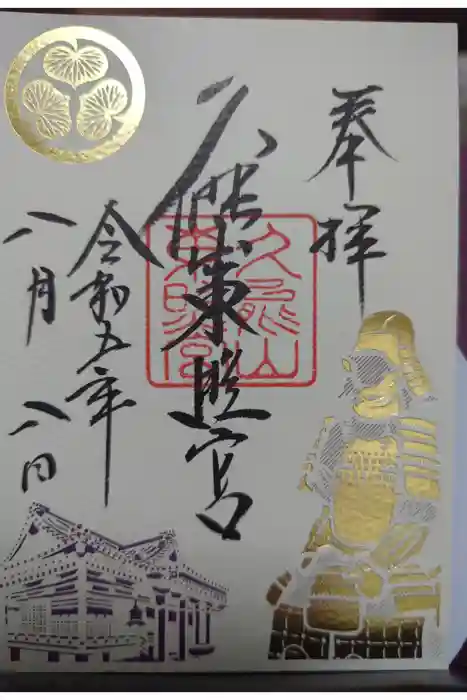 奉拝
久能東照宮
久能山
東照宮
令和五年
八月八日